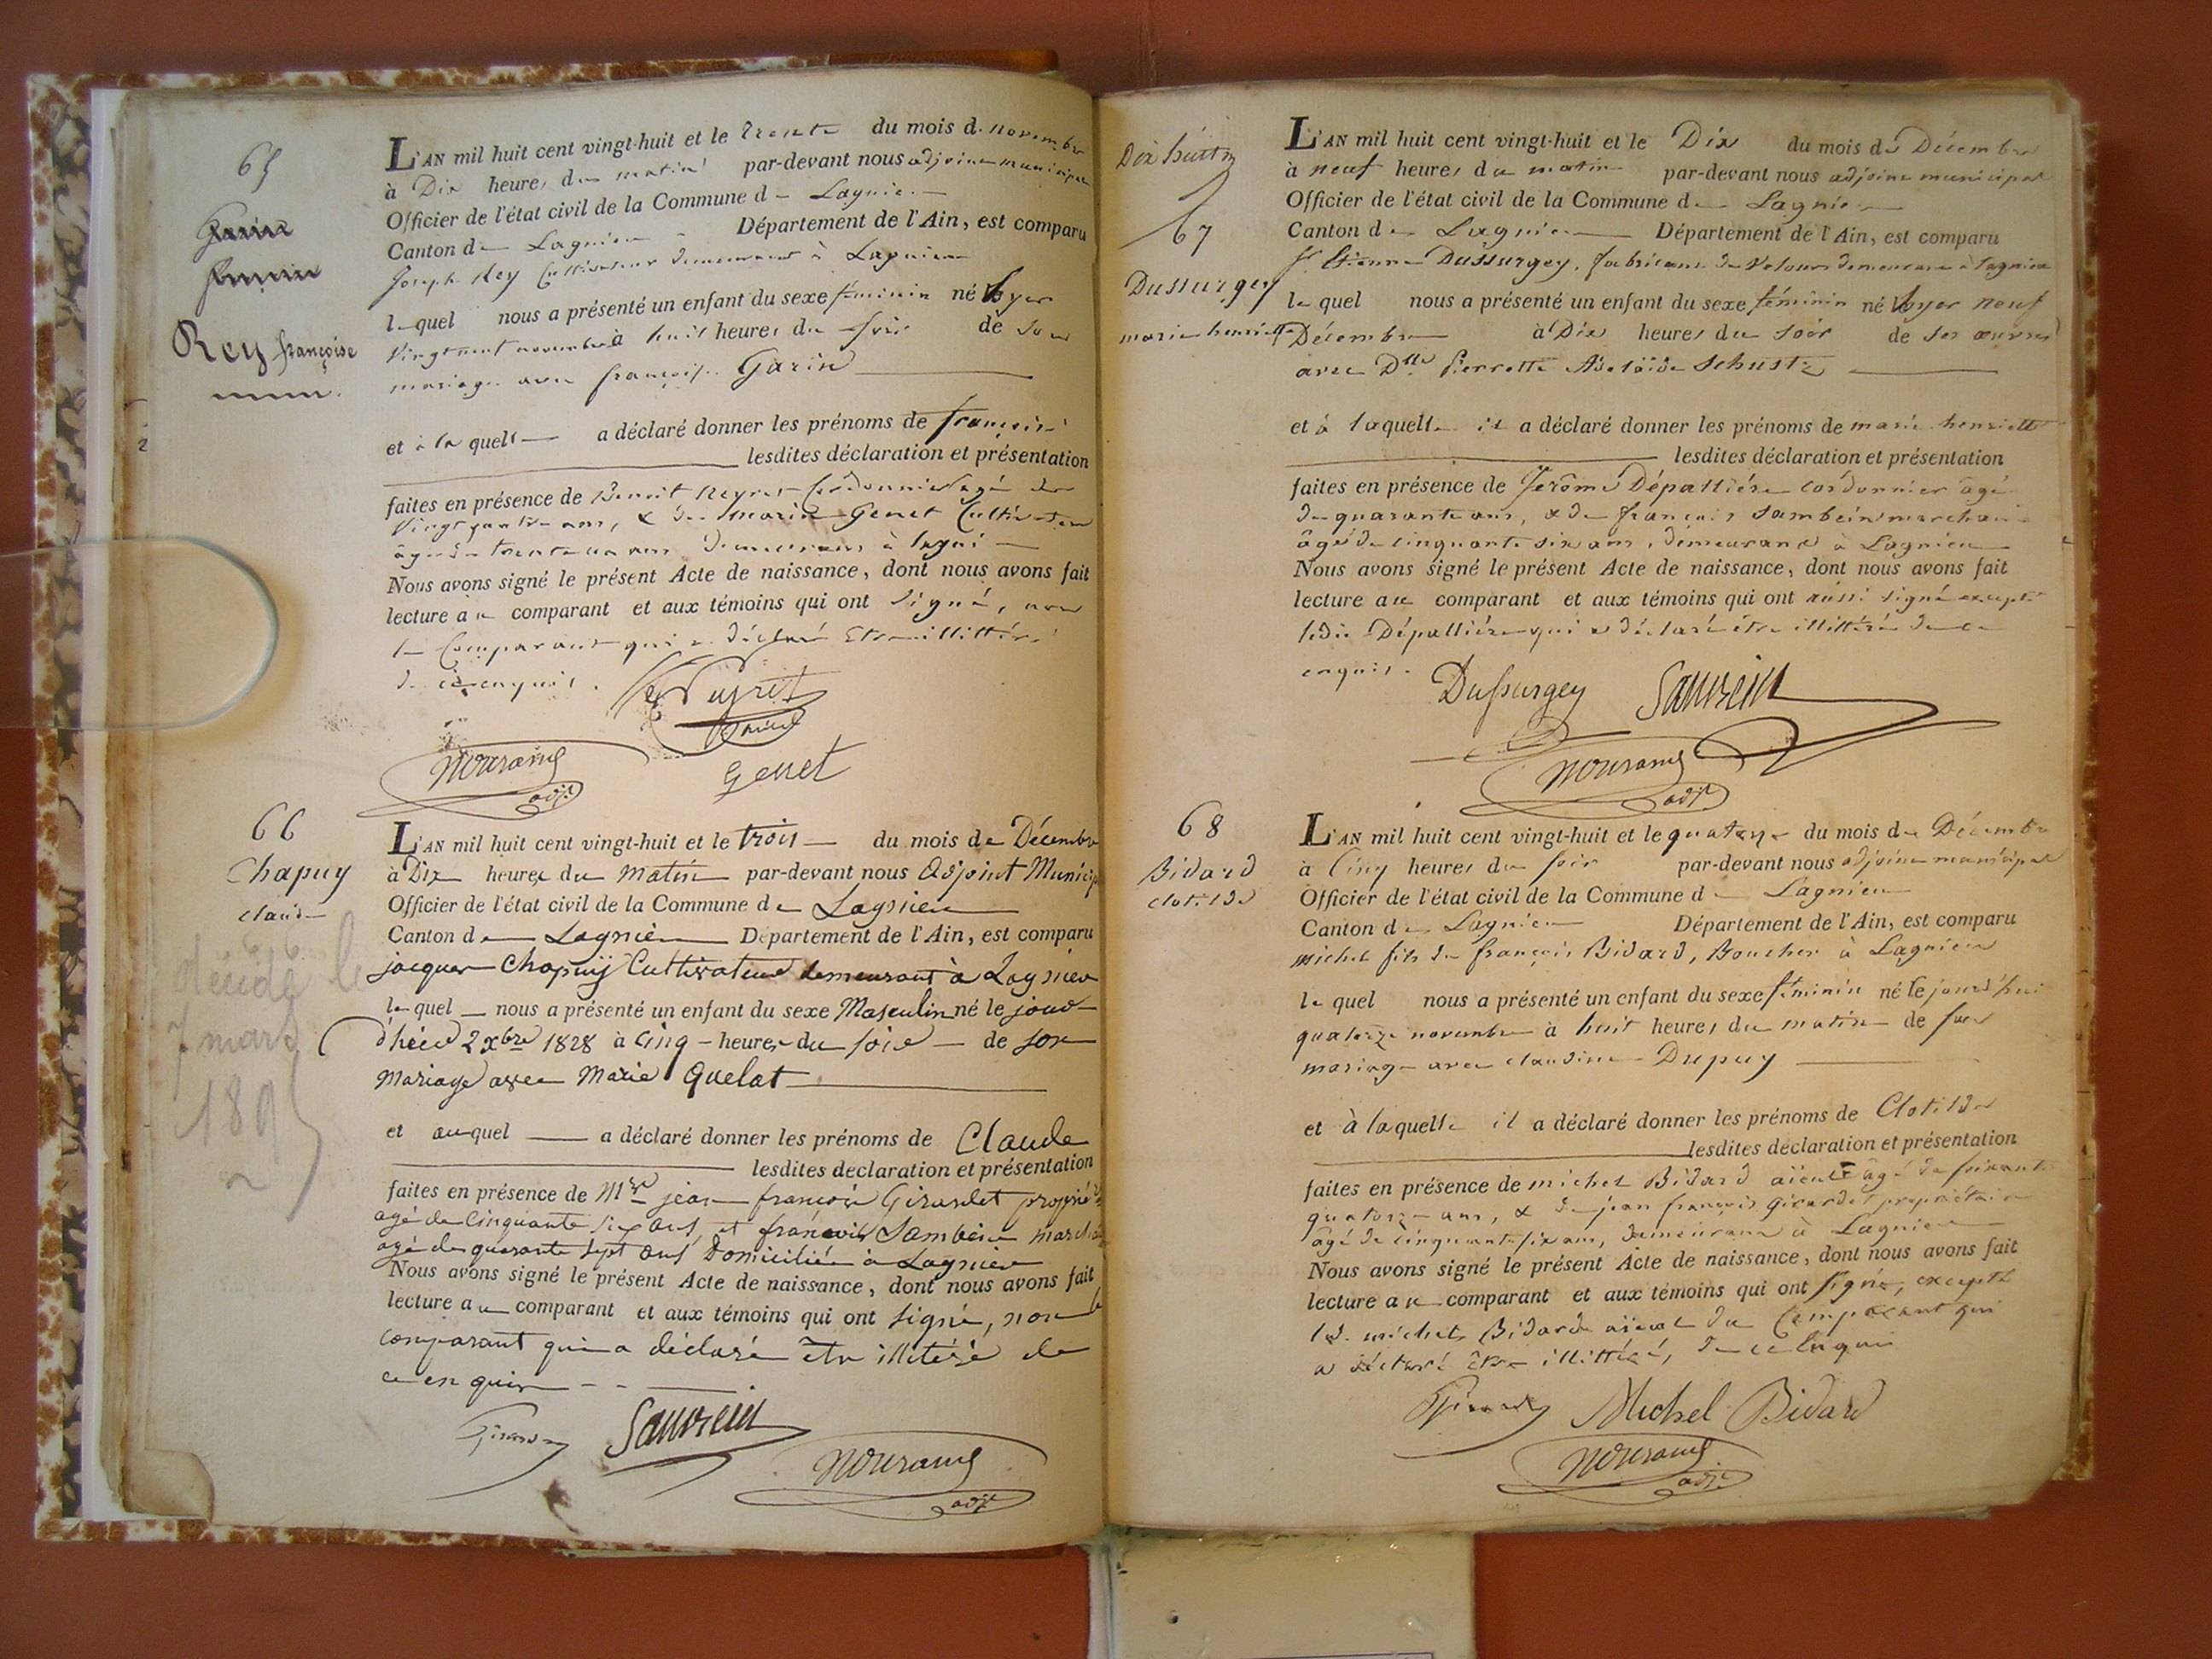 65
Garin
françoise
Rey françoise
L'AN mil huit cent vingt-huit et le Trente du mois d. novembre
à Dix heures du matin par-devant nous adjoint municipal
Officier de l'état civil de la Commune de Lagnieu
Canton de Lagnieu Département de l'Ain, est comparu
Joseph Rey Cultivateur demeurant à Lagnieu
lequel nous a présenté un enfant du sexe féminin né hyer
vingt neuf novembre à huit heures du soir de son
mariage avec françoise Garin
et à la quelle a déclaré donner les prénoms de françoise
lesdites déclaration et présentation
faites en présence de Benoit Reyret Cordonnier agé de
Vingt quatre ans, & de Marin Genet Cultivateur
âgé de trente un ans demeurans à Lagnieu
Nous avons signé le présent Acte de naissance, dont nous avons fait
lecture au comparant et aux témoins qui ont signé, non
le Comparant qui a déclaré Etre illittéré
de ce enquis.
Genet
adjt
66
Chapuy
claude
décédé le
7 mars
189
L'AN mil huit cent vingt-huit et le trois du mois de Décembre
à Dix heures du Matin par-devant nous Adjoint Municip
Officier de l'état civil de la Commune de Lagnieu
Canton de Lagnieu Département de l'Ain, est comparu
jacques Chapuy Cultivateur demeurant à Lagnieu
lequel nous a présenté un enfant du sexe Masculin né le jour
d'hier 2 xbre 1828 à Cinq heures du soir de son
Mariage avec Marie Quelat
et auquel a déclaré donner les prénoms de Claude
lesdites declaration et présentation
faites en présence de Mr jean françois Girardet propriét
agé de Cinquante six ans, et françois Sambein march
agé de quarante sept ans Domiciliés à Lagnieu
Nous avons signé le présent Acte de naissance, dont nous avons fait
lecture au comparant et aux témoins qui ont signé, non le
comparant qui a déclaré être illitéré de
ce enquis
adjt
Dix huit
67
Dussurgey
marie henriette
L'AN mil huit cent vingt-huit et le Dix du mois de Décembre
à neuf heures du matin par-devant nous adjoint municipal
Officier de l'état civil de la Commune de Lagnieu
Canton de Lagnieu Département de l'Ain, est comparu
Etienne Dussurgey, fabricant de Velours demeurant à Lagnieu
lequel nous a présenté un enfant du sexe féminin né hyer neuf
Décembre à Dix heures du soir de ses œuvres
avec Dlle Pierrette Adelaïde Schustz
et à laquelle il a déclaré donner les prénoms de marie henriette
lesdites déclaration et présentation
faites en présence de Jerôme Dépallière cordonnier âgé
de quarante ans, & de françois Sambein marchand
âgé de cinquante six ans, demeurans à Lagnieu
Nous avons signé le présent Acte de naissance, dont nous avons fait
lecture au comparant et aux témoins qui ont aussi signé excepté
ledit Dépallière qui a déclaré être illittéré de ce
enquis.
Dussurgey
adjt
68
Bidard
clotilde
L'AN mil huit cent vingt-huit et le quatorze du mois de Décembre
à Cinq heures du soir par-devant nous adjoint municipal
Officier de l'état civil de la Commune de Lagnieu
Canton de Lagnieu Département de l'Ain, est comparu
michel fils de françois Bidard, Boucher à Lagnieu
lequel nous a présenté un enfant du sexe féminin né le jourd'hui
quatorze novembre à huit heures du matin de son
mariage avec claudine Dupuy
et à laquelle il a déclaré donner les prénoms de Clotilde
lesdites declaration et présentation
faites en présence de michel Bidard aïeul âgé de soixante
quatorze ans, & de jean françois girardet propriétaire
âgé de cinquante six ans, demeurans à Lagnieu
Nous avons signé le présent Acte de naissance, dont nous avons fait
lecture au comparant et aux témoins qui ont signé, excepté
led. michel Bidard aïeul du Comparant qui
a déclaré être illittéré, de ce Enquis
Michel Bidard
adjt